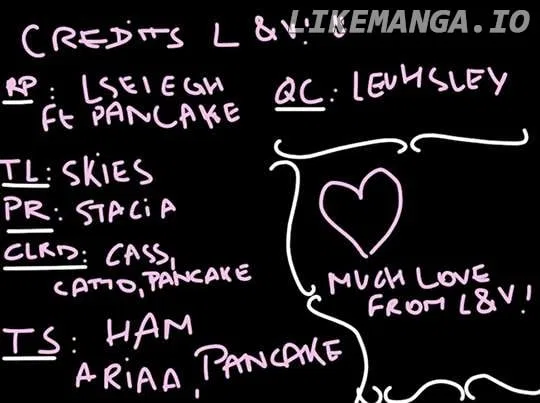 LIKEMANGA.IO
CREDITS L &V:
RP: LSEIEGH
Ft PANCAKE
QC: LEUHSLEY
TL: SKIES
PR: STACIA
CLRD: CASS,
CATTO, PANCAKE
TS: HAM
ARIAA, PANCAKE
MUCH LOVE
FROM L&V!